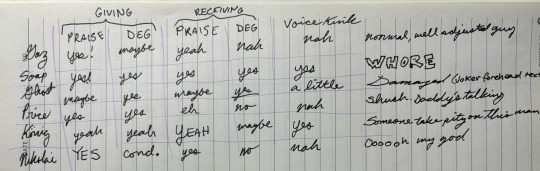 GIVING RECEIVING
PRAISE DEG PRAISE DEG Voice Kink
Gaz yes! maybe yeah nah nah normal, well adjusted guy
Soap yes! yes yes yes yes WHORE
Ghost maybe yes maybe yes a little Damaged (Joker forehead
Price yes yes eh no nah Shush Daddy's talking
König yeah yeah YEAH maybe yes Someone take pity on this man
Nikolai YES cond. yes no nah Oooooh my god